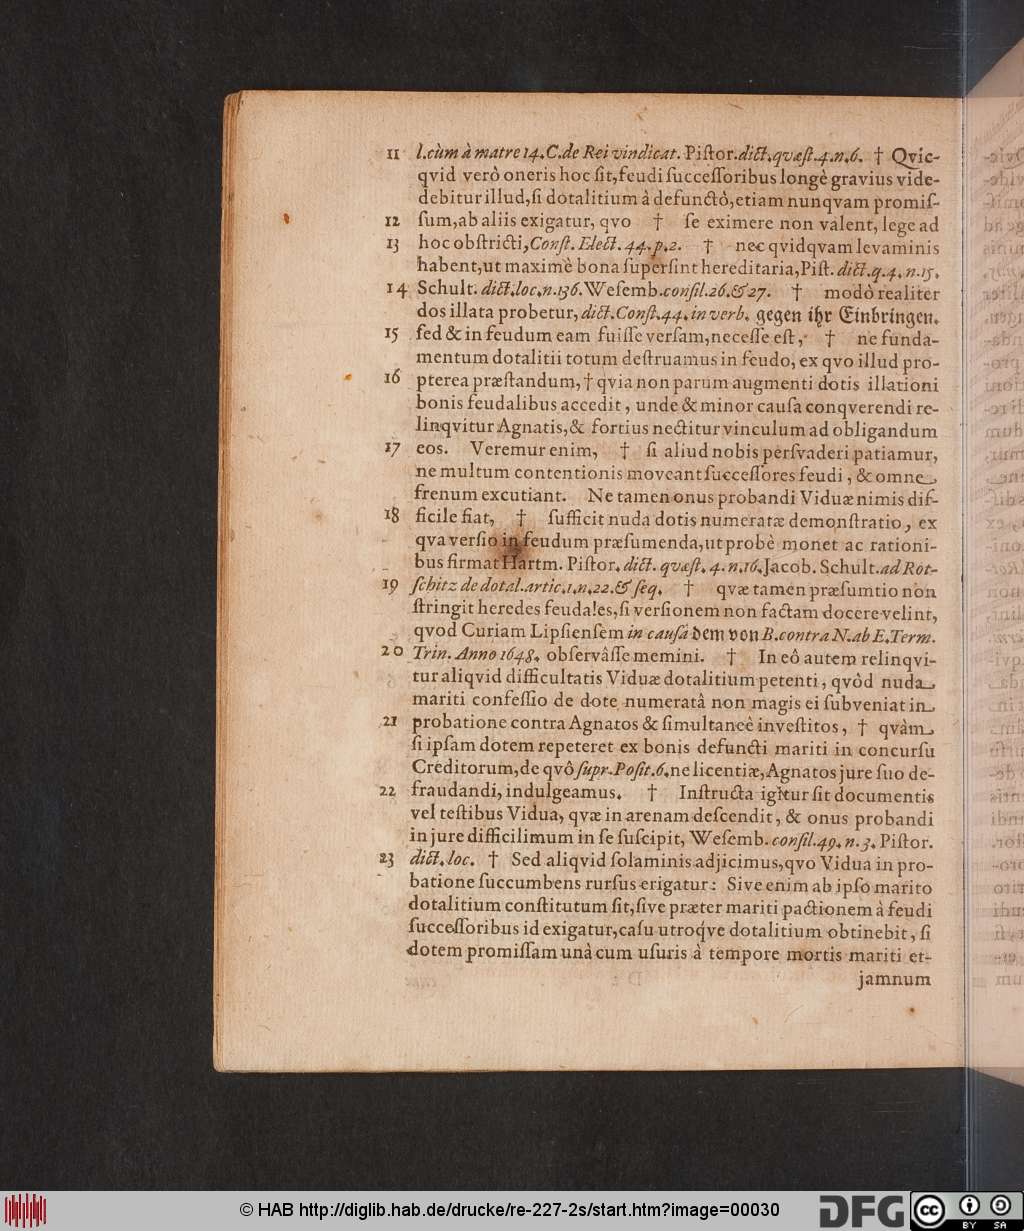 11 l.cùm à matre 14. C. de Rei vindicat. Piſtor. dict. qvæſt. 4. n. 6. † Qvic-
qvid verò oneris hoc ſit, feudi ſucceſſoribus longè gravius vide-
debitur illud, ſi dotalitium à defunctô, etiam nunqvam promiſ-
12 ſum, ab aliis exigatur, qvo † ſe eximere non valent, lege ad
13 hoc obſtricti, Conſt. Elect. 44. p. 2. † nec qvidqvam levaminis
habent, ut maximè bona ſuperſint hereditaria, Piſt. dict. q. 4. n. 15.
14 Schult. dict. loc. n. 136. Weſemb. conſil. 26. & 27. † modò realiter
dos illata probetur, dict. Conſt. 44. in verb. gegen ihr Einbringen.
15 ſed & in feudum eam fuiſſe verſam, neceſſe eſt, † ne funda-
mentum dotalitii totum deſtruamus in feudo, ex qvo illud pro-
16 pterea præſtandum, † qvia non parum augmenti dotis illationi
bonis feudalibus accedit, unde & minor cauſa conqverendi re-
linqvitur Agnatis, & fortius nectitur vinculum ad obligandum
17 eos. Veremur enim, † ſi aliud nobis perſvaderi patiamur,
ne multum contentionis moveant ſucceſſores feudi, & omne
frenum excutiant. Ne tamen onus probandi Viduæ nimis diſ-
18 ficile fiat, † ſufficit nuda dotis numeratæ demonſtratio, ex
qva verſio in feudum præſumenda, ut probè monet ac rationi-
bus firmat Hartm. Piſtor. dict. qvæſt. 4. n. 16. Jacob. Schult. ad Rot-
19 ſchitz de dotal. artic. 1. n. 22. & ſeq. † qvæ tamen præſumtio non
ſtringit heredes feudales, ſi verſionem non factam docere velint,
qvod Curiam Lipſienſem in cauſâ dem von B. contra N. ab E. Term.
20 Trin. Anno 1648. obſervâſſe memini. † In eô autem relinqvi-
tur aliqvid difficultatis Viduæ dotalitium petenti, qvôd nuda
mariti confeſſio de dote numeratâ non magis ei ſubveniat in
21 probatione contra Agnatos & ſimultaneè inveſtitos, † qvàm
ſi ipſam dotem repeteret ex bonis defuncti mariti in concurſu
Creditorum, de qvô ſupr. Poſit. 6. ne licentiæ, Agnatos jure ſuo de-
22 fraudandi, indulgeamus. † Inſtructa igitur ſit documentis
vel teſtibus Vidua, qvæ in arenam deſcendit, & onus probandi
in jure difficilimum in ſe ſuſcipit, Weſemb. conſil. 49. n. 3. Piſtor.
23 dict. loc. † Sed aliqvid ſolaminis adjicimus, qvo Vidua in pro-
batione ſuccumbens rurſus erigatur: Sive enim ab ipſo marito
dotalitium conſtitutum ſit, ſive præter mariti pactionem à feudi
ſucceſſoribus id exigatur, caſu utroq́ve dotalitium obtinebit, ſi
dotem promiſſam unà cum uſuris à tempore mortis mariti et-
jamnum
© HAB http://diglib.hab.de/drucke/re-227-2s/start.htm?image=00030
DFG
cc BY SA